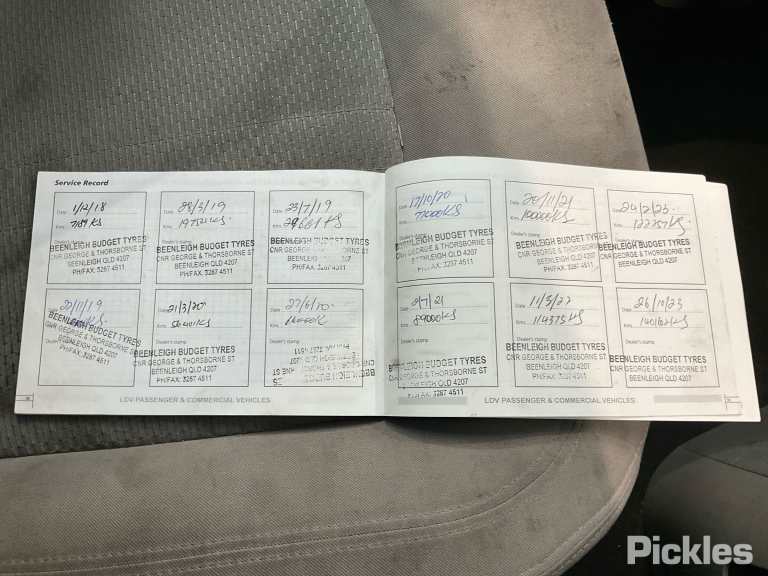 Service Record
Date 1/12/18
Kms 7189 KS
Dealer's stamp
BEENLEIGH BUDGET TYRES
CNR GEORGE & THORSBORNE ST
BEENLEIGH QLD 4207
PH/FAX: 3287 4511
Date 28/3/19
Kms
BEENLEIGH BUDGET TYRES
CNR GEORGE & THORSBORNE ST
BEENLEIGH QLD 4207
PH/FAX: 3287 4511
Date 23/7/19
Kms
BEENLEIGH BUDGET TYRES
CNR GEORGE & THORSBORNE ST
BEENLEIGH QLD 4207
PH/FAX:
Date 17/10/20
Kms 77000KS
BEENLEIGH BUDGET TYRES
CNR GEORGE & THORSBORNE ST
BEENLEIGH QLD 4207
PH/FAX: 3287 4511
Date 20/11/21
Kms 100000KS
Dealer's stamp
BEENLEIGH BUDGET TYRES
CNR GEORGE & THORSBORNE ST
BEENLEIGH QLD 4207
PH/FAX: 3287 4511
Date 24/2/23
Kms
BEENLEIGH BUDGET TYRES
CNR GEORGE & THORSBORNE ST
BEENLEIGH QLD 4207
PH/FAX: 3287 4511
Date
Kms
Dealer's stamp
BEENLEIGH BUDGET TYRES
CNR GEORGE & THORSBORNE ST
BEENLEIGH QLD 4207
PH/FAX: 3287 4511
Date 21/3/20
Kms 56401KS
Dealer's stamp
BEENLEIGH BUDGET TYRES
CNR GEORGE & THORSBORNE ST
BEENLEIGH QLD 4207
PH/FAX: 3287 4511
Date 27/6/20
Kms
Dealer's stamp
Date 2/7/21
Kms 89000KS
Dealer's stamp
BEENLEIGH BUDGET TYRES
CNR GEORGE & THORSBORNE ST
BEENLEIGH QLD 4207
Date 11/3/22
Kms 114375KS
Dealer's stamp
BEENLEIGH BUDGET TYRES
CNR GEORGE & THORSBORNE ST
BEENLEIGH QLD 4207
PH/FAX: 3287 4511
Date 26/10/23
Kms 140162KS
Dealer's stamp
BEENLEIGH BUDGET TYRES
CNR GEORGE & THORSBORNE ST
BEENLEIGH QLD 4207
PH/FAX: 3287 4511
LDV PASSENGER & COMMERCIAL VEHICLES
LDV PASSENGER & COMMERCIAL VEHICLES
Pickles